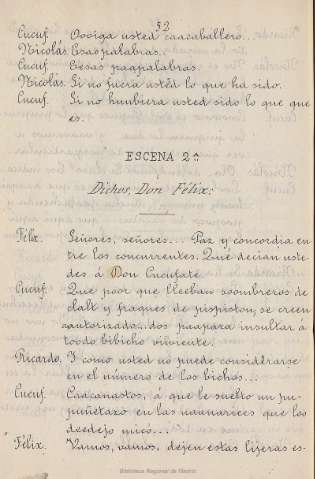 52
Cucuf. Oooiga usted caacaballero...
Nicolás. Esas palabras...
Cucuf. Eesas paapalabras.
Nicolás. Si no fuera usted lo que ha sido.
Cucuf. Si no huubiera usted sido lo que que
es.
ESCENA 2ª
Dichos, Don Félix.
Félix. Señores, señores... Paz y concordia en
tre los concurrentes. Que decian uste-
des á Don Cucufate.
Cucuf. Que poor que lleeban soombreros de
clalt y fraques de pispiston, se creen
aautorizado..dos paapara insultar á
toodo bibicho viviente.
Ricardo. Y como usted no puede considerarse
en el número de los bichos...
Cucuf. Caacanastos, á que le suelto un pu-
puñetazo en las naunarices que los
deedejo
Félix. Vamos, vamos, dejen estas lijeras es-
Biblioteca Regional de Madrid